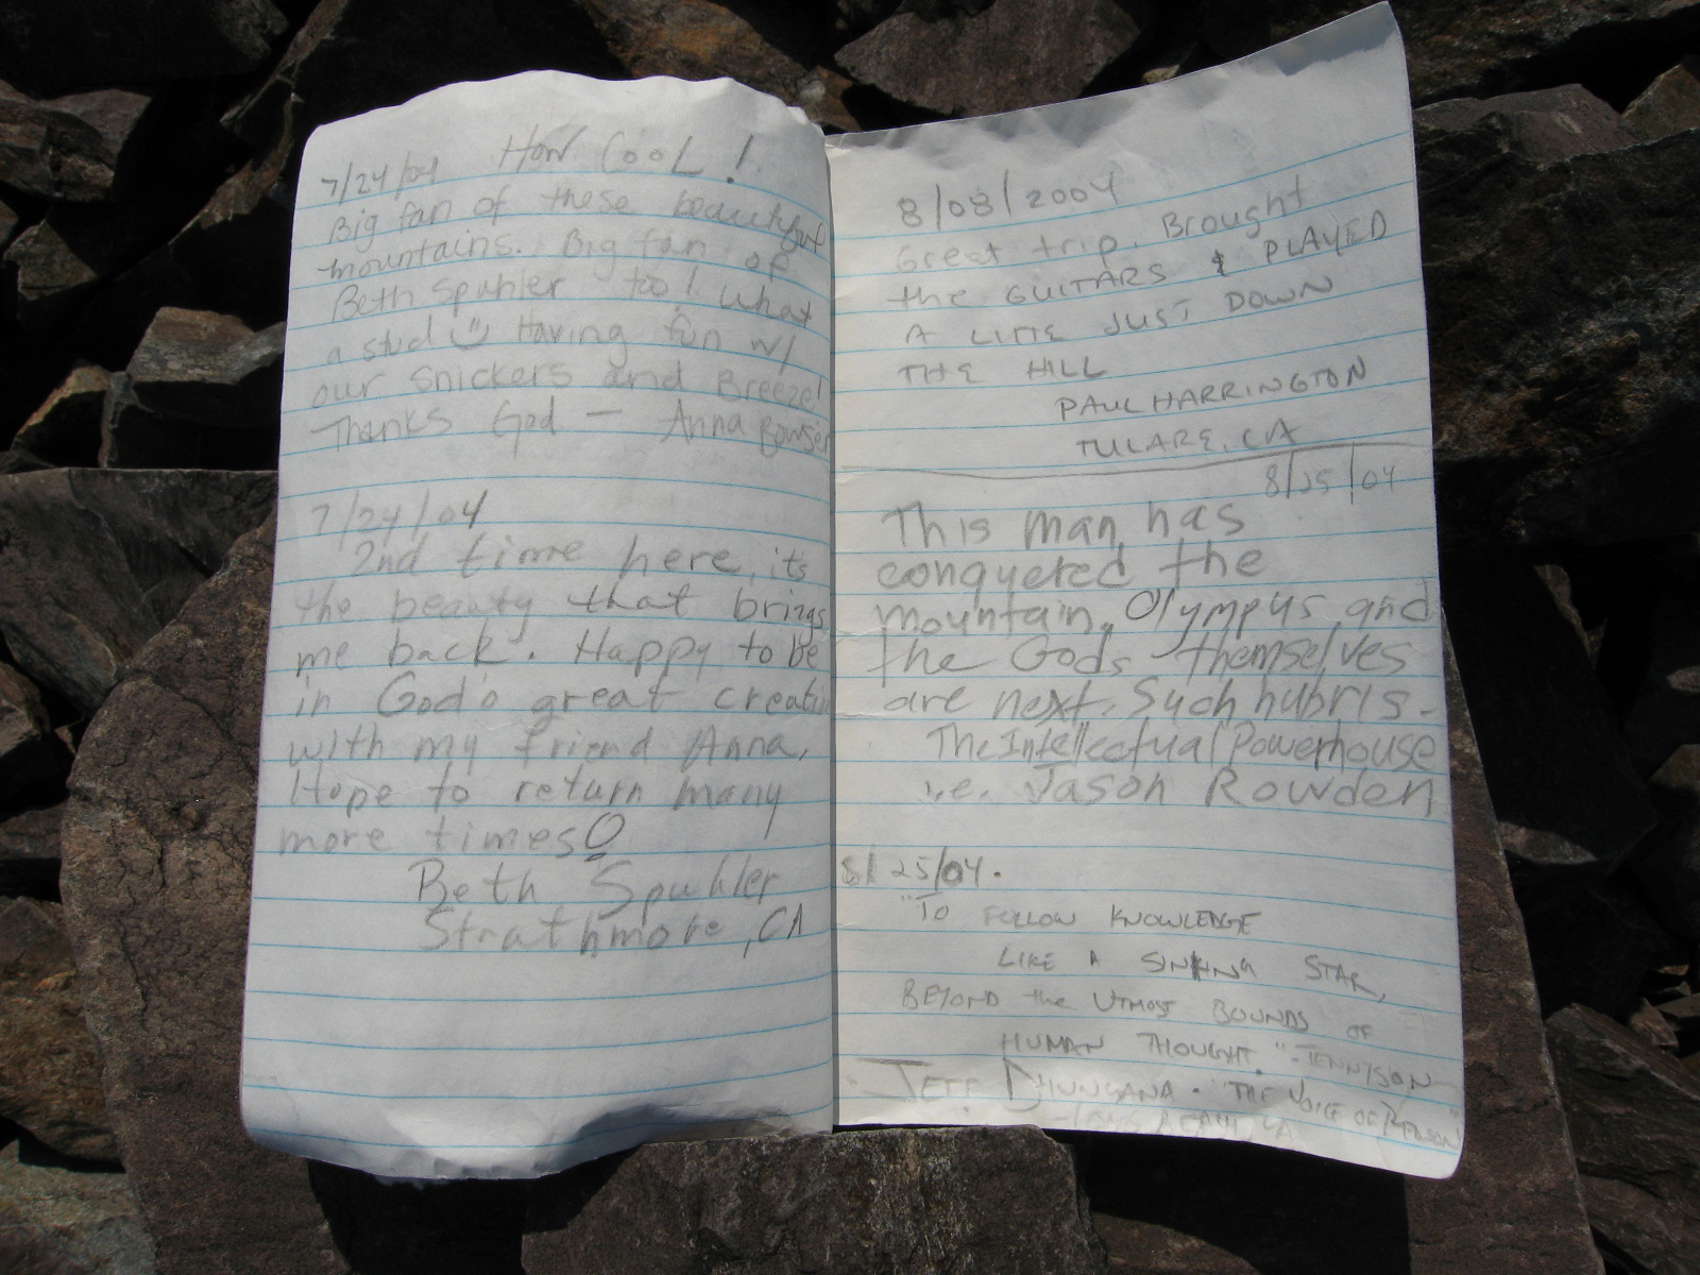 How Cool!
7/24/04
Big fan of these beautiful
mountains. Big fan of
Beth Spuhler too! What
a stud Having fun w/
our snickers and Breeze!
Thanks God — Anna Bowser
7/24/04
2nd time here, it's
the beauty that brings
me back. Happy to be
in God's great creation
with my friend Anna,
Hope to return many
more times!
Beth Spuhler
Strathmore, CA
8/08/2004
Great trip. Brought
the GUITARS & PLAYED
A LITTLE JUST DOWN
THE HILL
PAUL HARRINGTON
TULARE, CA
8/25/04
This man has
conquered the
mountain, Olympus and
the Gods themselves
are next. Such hubris -
The Intellectual Powerhouse
i.e. Jason Rowden
8/25/04.
"TO FOLLOW KNOWLEDGE
LIKE A SINKING STAR,
BEYOND the UTMOST BOUNDS OF
HUMAN THOUGHT." - TENNYSON
JEFF DHUNGANA. "THE VOICE OF REASON"